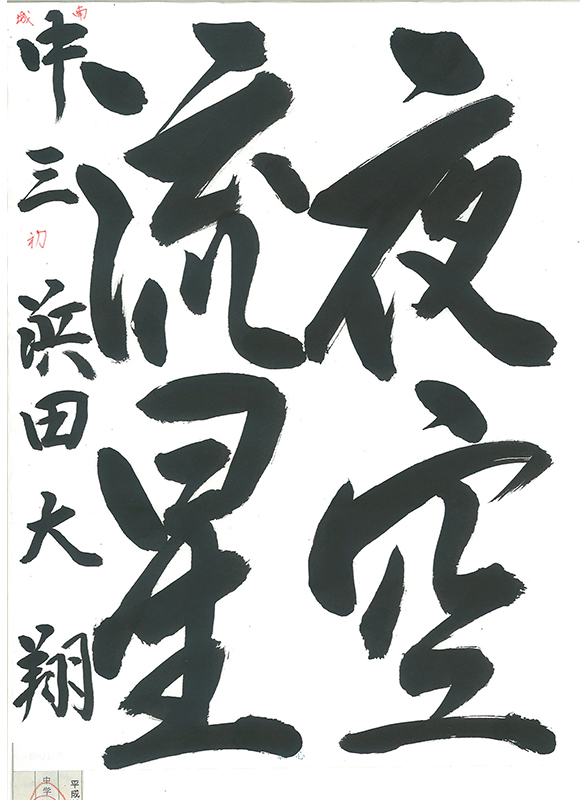 夜空
流星
南城
中三 初
浜田大翔
平成
中学